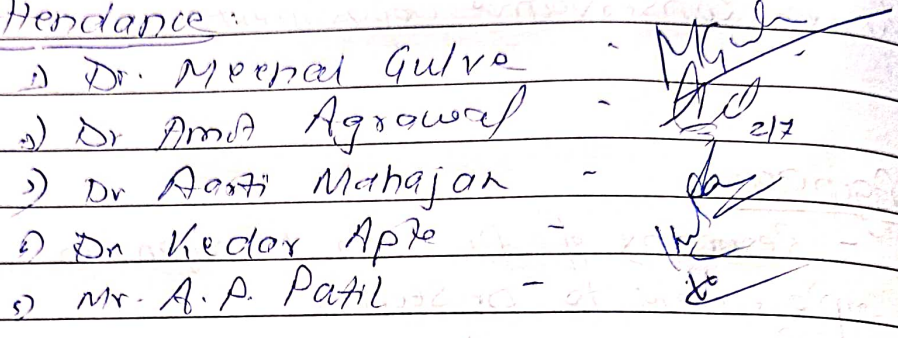 Attendance:
1) Dr. Meenal Gulve -
2) Dr Amit Agrawal - 2/7
3) Dr Aarti Mahajan -
4) Dr Kedar Apte -
5) Mr. A. P. Patil -